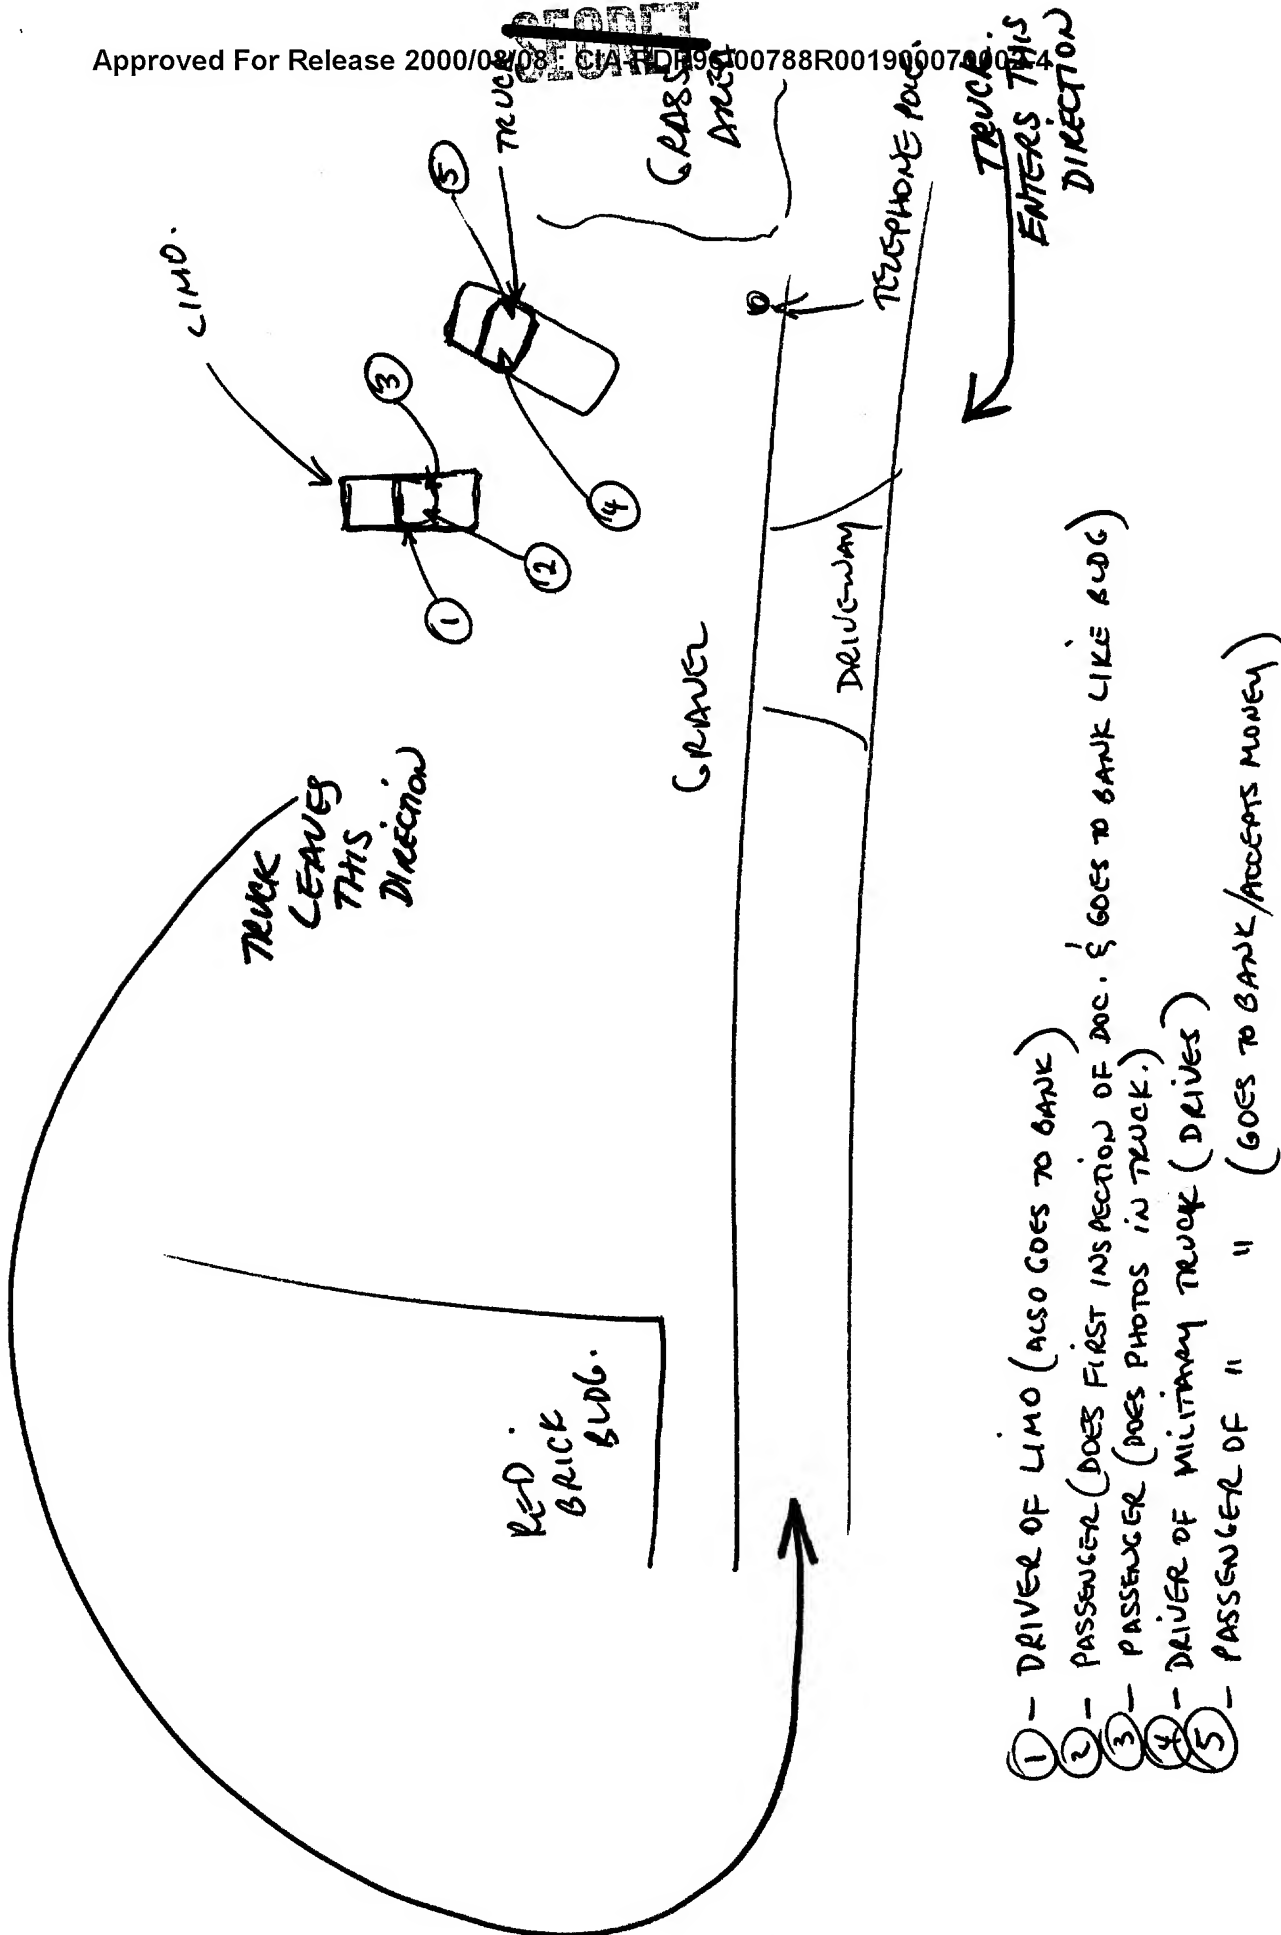 SECRET
Approved For Release 2000/08/08 : CIA-RDP96-00788R001900070007-4
LIMO.
TRUCK
GRASS
AREA
TELEPHONE POLE.
TRUCK.
ENTERS THIS
DIRECTION
5
3
4
2
1
GRAVEL
DRIVEWAY
TRUCK
LEAVES
THIS
DIRECTION
RED
BRICK
BLDG.
1 - DRIVER OF LIMO (ALSO GOES TO BANK)
2 - PASSENGER (DOES FIRST INSPECTION OF DOC. & GOES TO BANK LIKE BLDG)
3 - PASSENGER (DOES PHOTOS IN TRUCK.)
4 - DRIVER OF MILITARY TRUCK (DRIVES)
5 - PASSENGER OF " " (GOES TO BANK/ACCEPTS MONEY)